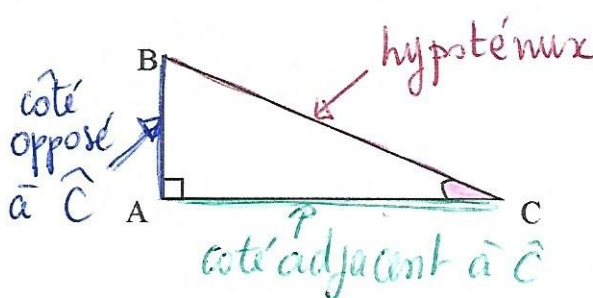 B
hypsténux
côté
opposé
à Ĉ
A
C
coté adjacent à Ĉ